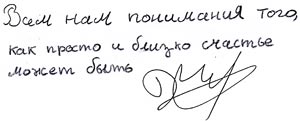 Всем нам понимания того,
как просто и близко счастье
может быть